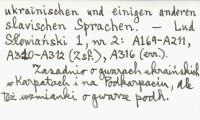 ukrainischen und einigen anderen
slavischen Sprachen. – Lud
Słowiański 1, nr 2: A169-A211,
A310-A312 (Zsf.), A316 (err.).
Zasadniczo o gwarach ukraińskich
w Karpatach i na Podkarpaciu, ale
też wzmianki o gwarze podh.